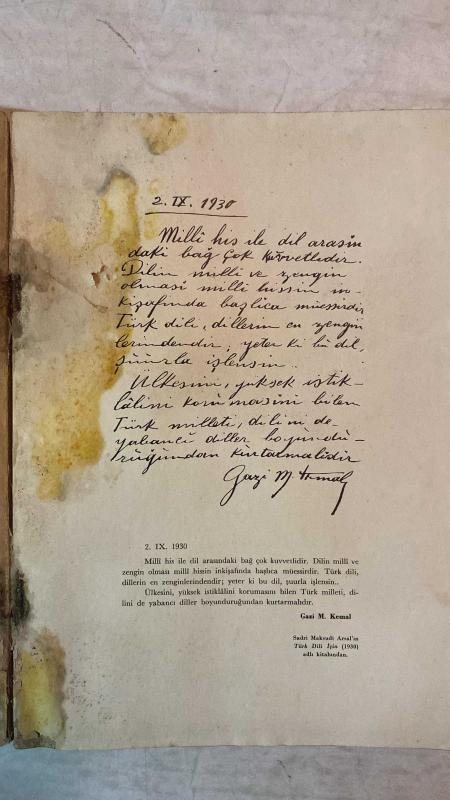 2. IX. 1930
Millî his ile dil arasın
daki bağ çok kuvvetlidir.
Dilin millî ve zengin
olması millî hissin in-
kişafında başlıca müessirdir.
Türk dili, dillerin en zengin
lerindendir; yeter ki bu dil,
şuurla işlensin..
Ülkesini, yüksek istik-
lâlini korumasını bilen
Türk milleti, dilini de
yabancı diller boyundu-
ruğundan kurtarmalıdır
Gazi M. Kemal
2. IX. 1930
Millî his ile dil arasındaki bağ çok kuvvetlidir. Dilin millî ve
zengin olması millî hissin inkişafında başlıca müessirdir. Türk dili,
dillerin en zenginlerindendir; yeter ki bu dil, şuurla işlensin..
Ülkesini, yüksek istiklâlini korumasını bilen Türk milleti, di-
lini de yabancı diller boyunduruğundan kurtarmalıdır.
Gazi M. Kemal
Sadri Maksudi Arsal'ın
Türk Dili İçin (1930)
adlı kitabından.